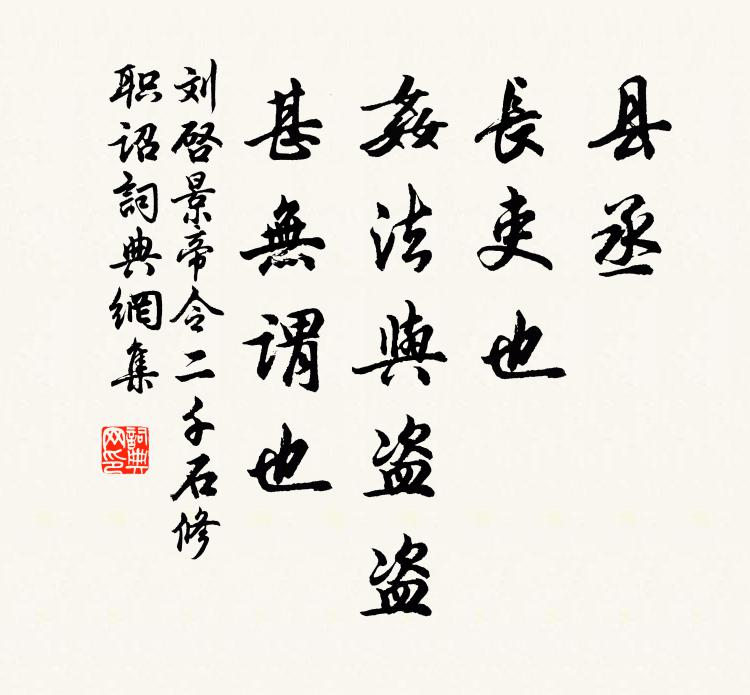 县丞
長吏也
姦法與盗盗
甚無謂也
刘啓景帝令二千石修
职詔詞典網集
詞典
网印